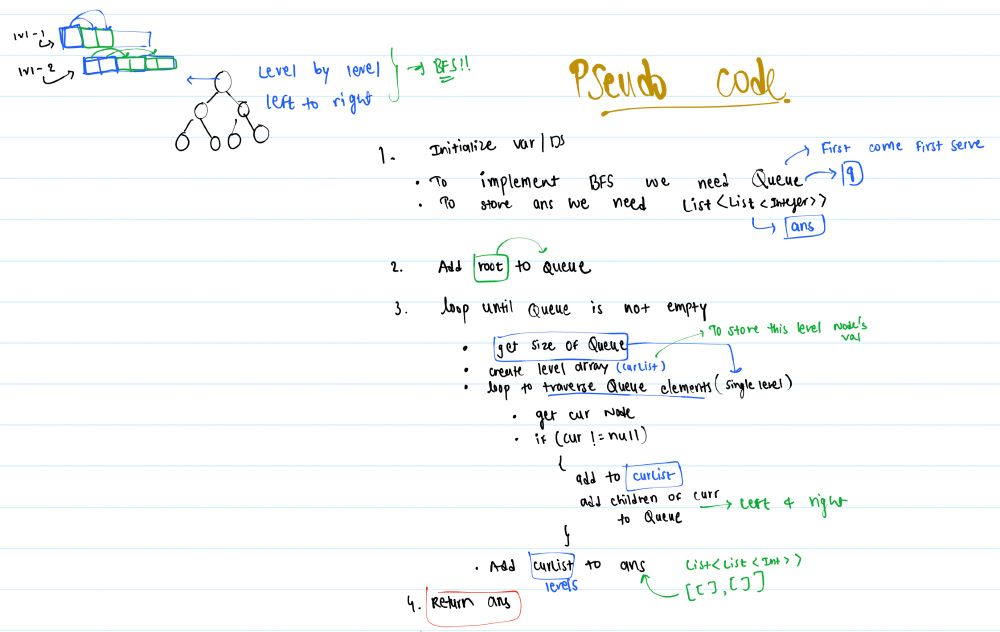 lvl-1
lvl-2
Level by level
left to right
→ BFS!!
Pseudo code
1. Initialize var/DS
• To implement BFS we need Queue → q
→ First come first serve
• To store ans we need List<List<Integer>>
→ ans
2. Add root to Queue
3. loop until Queue is not empty
• get size of Queue
→ To store this level Node's val
• create level array (curList)
• loop to traverse Queue elements (single level)
• get cur Node
• if (cur != null)
{
add to curList
add children of curr → left & right
to Queue
}
• Add curList to ans
levels
List<List<Int>>
[[],[]]
4. Return ans